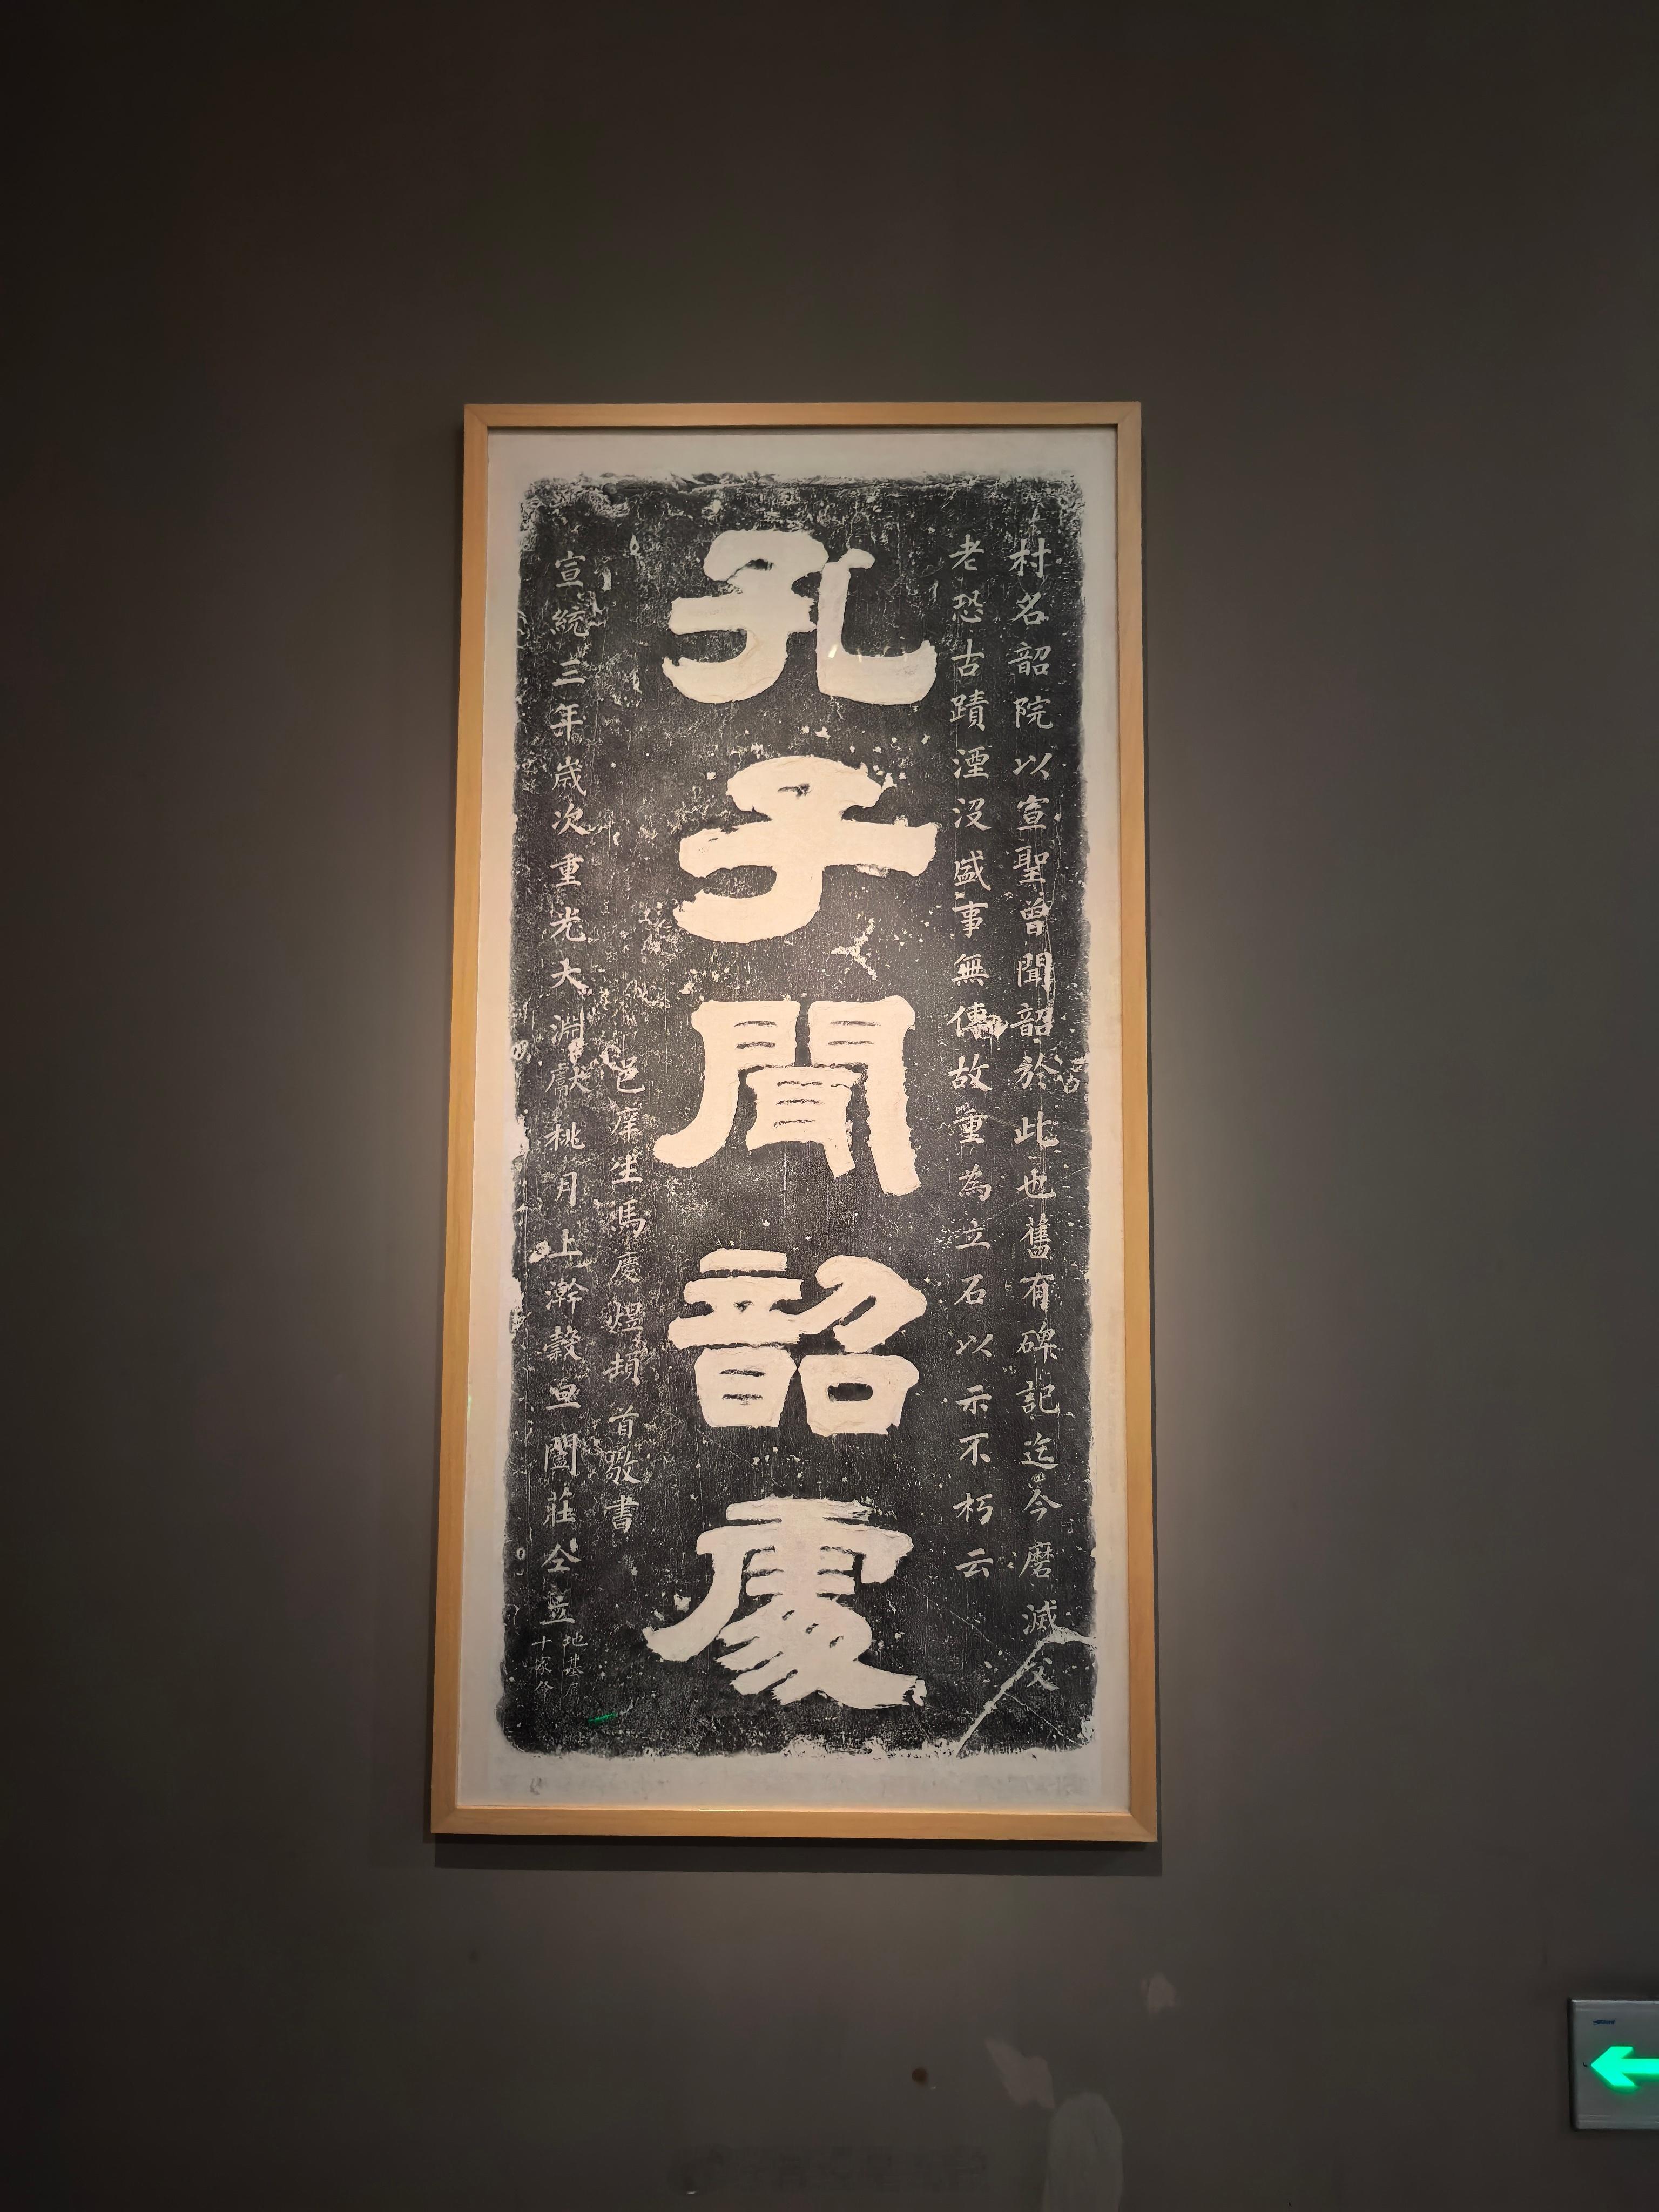 村名韶院以宣聖曾聞韶於此也舊有碑記迄今磨滅父
老恐古蹟湮沒盛事無傳故重為立石以示不朽云
孔子聞韶處
邑庠生馬慶熤頓首敬書
宣統三年歲次重光大淵獻桃月上澣穀旦闔莊仝立
地基
十家